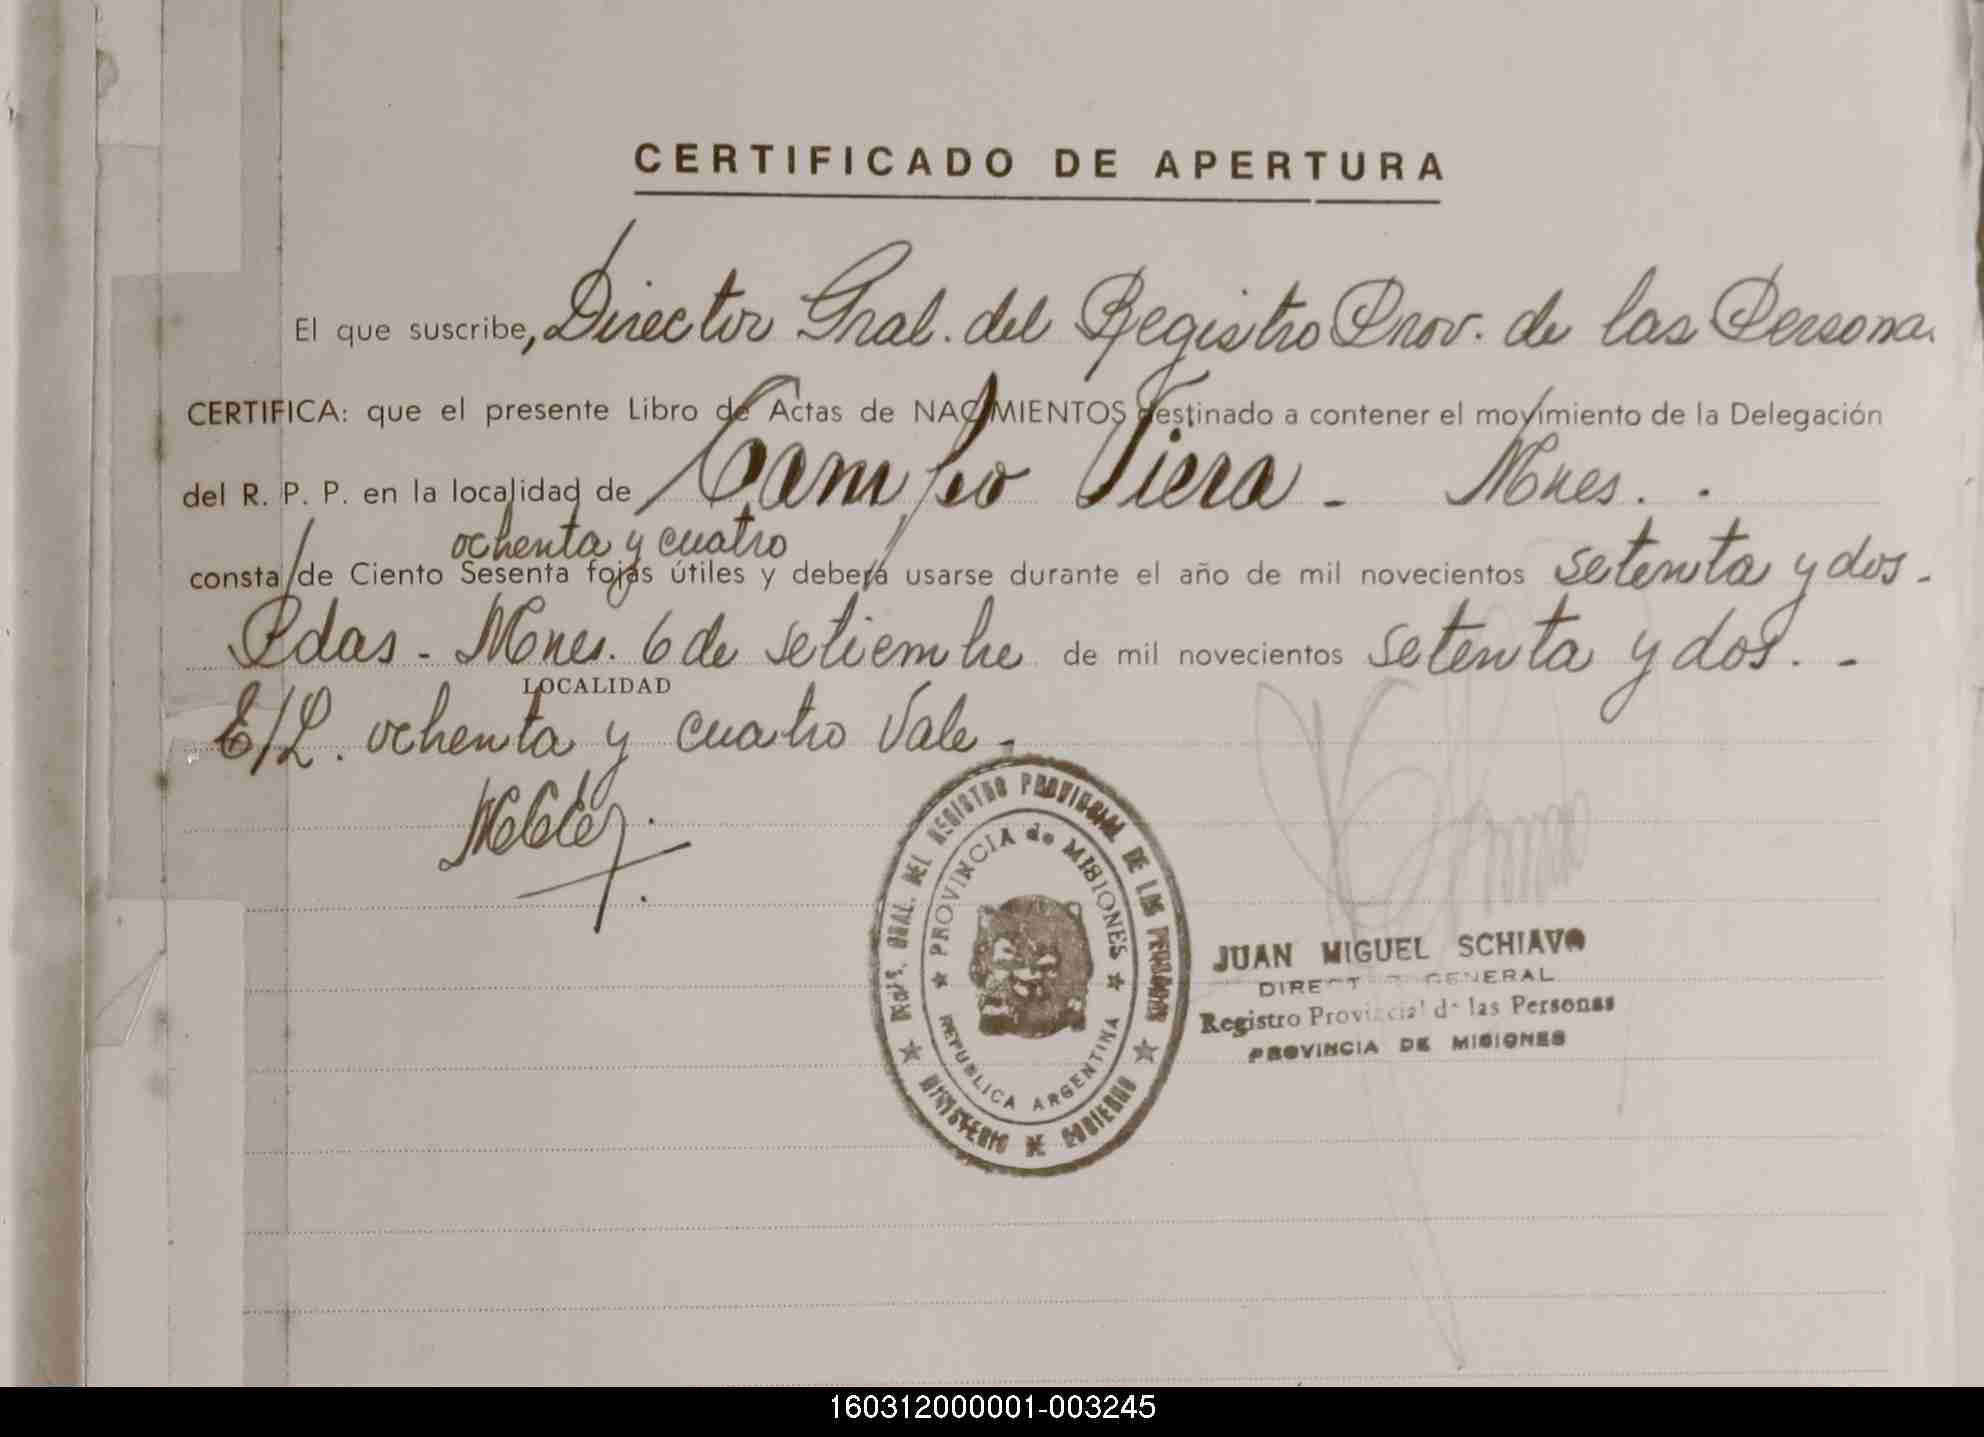 CERTIFICADO DE APERTURA
El que suscribe, Director Gral. del Registro Prov. de las Persona.
CERTIFICA: que el presente Libro de Actas de NACIMIENTOS destinado a contener el movimiento de la Delegación
del R. P. P. en la localidad de Campo Viera - Mnes. .
ochenta y cuatro
consta de Ciento Sesenta fojas útiles y deberá usarse durante el año de mil novecientos setenta y dos.
Pdas - Mnes. 6 de setiembre de mil novecientos setenta y dos. -
LOCALIDAD
E/L. ochenta y cuatro Vale -
DIR. GRAL. DEL REGISTRO PROVINCIAL DE LAS PERSONAS
PROVINCIA de MISIONES
REPUBLICA ARGENTINA
MINISTERIO DE GOBIERNO
JUAN MIGUEL SCHIAVO
DIRECTOR GENERAL
Registro Provincial de las Personas
PROVINCIA DE MISIONES
160312000001-003245